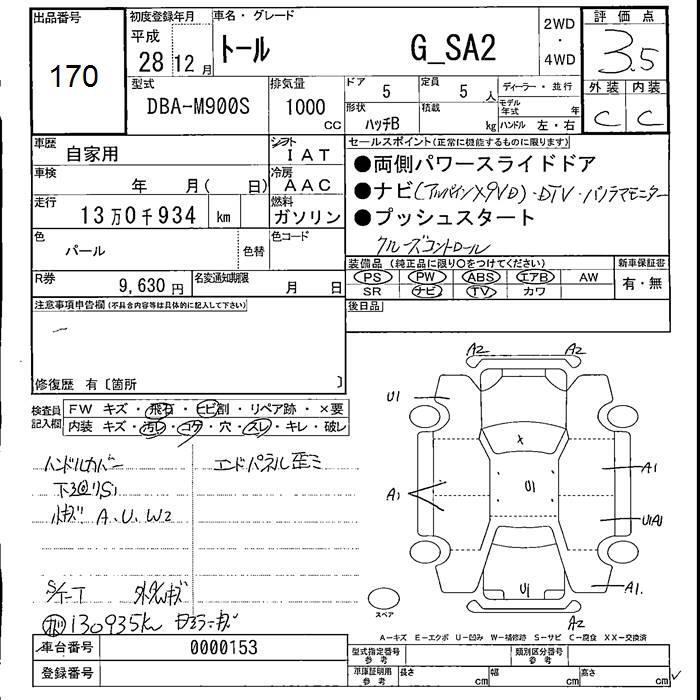 出品番号 初度登録年月 車名・グレード 2WD 評価点
170 平成 28 12月 トール G_SA2 ・ 4WD 3.5
型式 排気量 ドア 5 定員 5人 ディーラー・並行 外装 内装
DBA-M900S 1000 cc 形状 ハッチB 積載 kg モデル年式 年 ハンドル 左・右 C C
車歴 自家用 シフト IAT
車検 年 月( 日) 冷房 AAC
走行 13万0千934 km 燃料 ガソリン
色 パール 色替 色コード
R券 9,630円 名変通知期限 月 日
セールスポイント(正常に機能するものに限ります)
●両側パワースライドドア
●ナビ(アルパインX9VD)・DTV・パノラマモニター
●プッシュスタート
クルーズコントロール
装備品(純正品に限り○をつけてください) 新車保証書
PS PW ABS エアB AW 有・無
SR ナビ TV カワ
後日品
注意事項申告欄(不具合内容等は具体的に記入して下さい)
修復歴 有〔箇所 〕
検査員記入欄 FW キズ・飛石・ヒビ割・リペア跡・×要
内装 キズ・汚レ・コゲ・穴・スレ・キレ・破レ
ハンドルカバー エンドパネル歪ミ
下廻リS1
A、U、W2
130935km
車台番号 0000153
登録番号
A2 A2
U1
A1 A1
U1
U1
A1
A2
スペア
A-キズ E-エクボ U-凹み W-補修跡 S-サビ C-腐食 XX-交換済
型式指定番号 参考 類別区分番号 参考
車庫証明用 参考 長さ cm 幅 cm 高さ cm